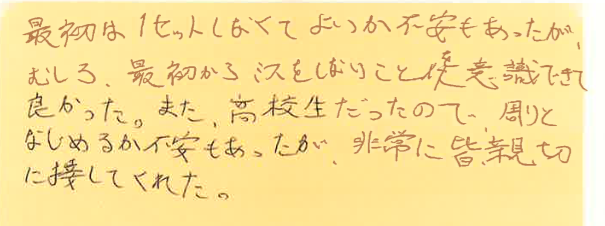 最初は1セットしなくてよいか不安もあったが、
むしろ、最初からミスをしないこと使意識できて
良かった。また、高校生だったので、周りと
なじめるか不安もあったが、非常に皆親切
に接してくれた。